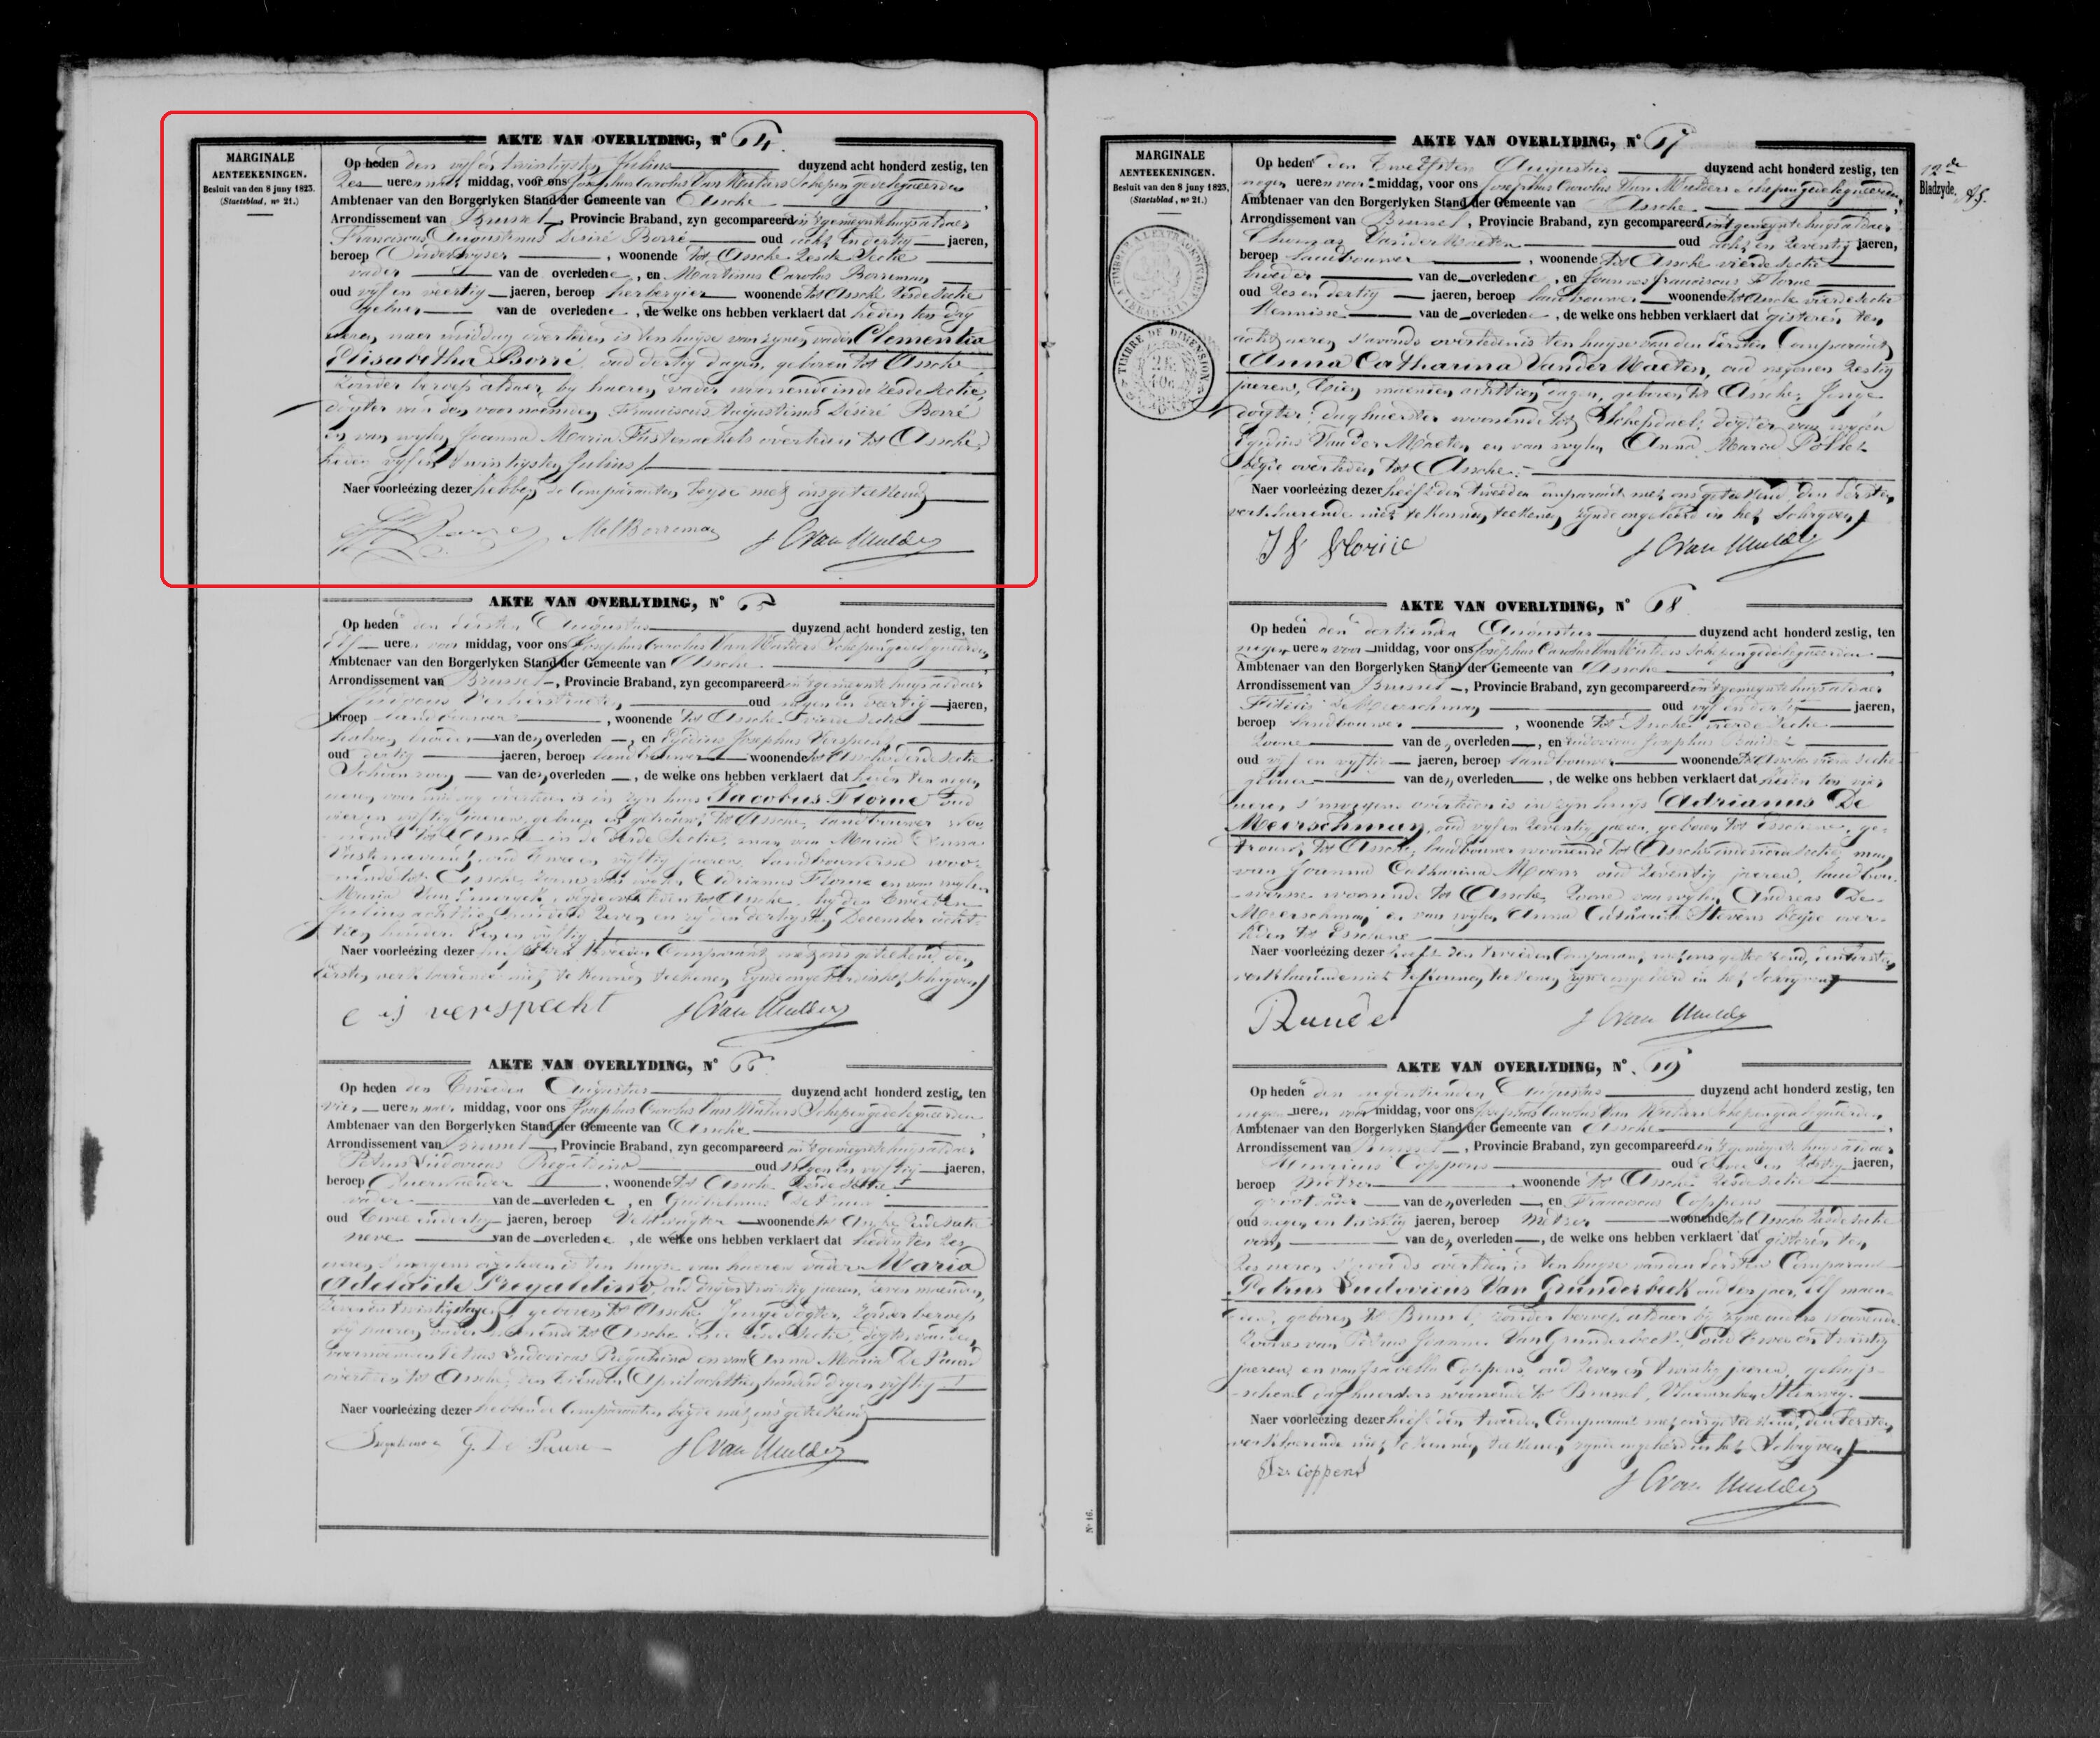 AKTE VAN OVERLYDING, N° 64.
MARGINALE
AENTEEKENINGEN.
Besluit van den 8 juny 1823.
(Staetsblad, n° 21.)
Op heden den vyf en twintigsten Julius duyzend acht honderd zestig, ten
Zes ueren naer middag, voor ons Josephus Carolus Van Mulders Schepen gedelegueerden
Ambtenaer van den Borgerlyken Stand der Gemeente van Assche
Arrondissement van Brussel, Provincie Braband, zyn gecompareerd in 't gemeynte huys aldaer
Franciscus Augustinus Désiré Borré oud acht en dertig jaeren,
beroep Onderwyser, woonende tot Assche Zesde Sectie
vader van de overledene, en Martinus Carolus Borreman
oud vyf en veertig jaeren, beroep herbergier woonende tot Assche Zesde Sectie
gebuer van de overledene, de welke ons hebben verklaert dat heden ten dry
ueren naer middag overleden is ten huyse van zynen vader Clementia
Elisabetha Borré, oud dertig dagen, geboren tot Assche
zonder beroep aldaer, by haeren vader woonende in de Zesde Sectie,
dogter van den voornoemden Franciscus Augustinus Désiré Borré
en van wylen Joanna Maria Fastenaekels overleden tot Assche
heden vyf en twintigsten Julius
Naer voorleézing dezer hebben de Comparanten beyde met ons geteekend
M C Borreman J C Van Mulders
AKTE VAN OVERLYDING, N° 65
Op heden den eersten Augustus duyzend acht honderd zestig, ten
Elf ueren voor middag, voor ons Josephus Carolus Van Mulders Schepen gedelegueerden
Ambtenaer van den Borgerlyken Stand der Gemeente van Assche
Arrondissement van Brussel, Provincie Braband, zyn gecompareerd in 't gemeynte huys aldaer
oud negen en veertig jaeren,
beroep landbouwer, woonende tot Assche vierde Sectie
halven broeder van den overleden, en Egidius Josephus Verspecht
oud dertig jaeren, beroep landbouwer woonende tot Assche derde Sectie
Schoonzoon van den overleden, de welke ons hebben verklaert dat heden ten negen
ueren voor middag overleden is in zyn huis Jacobus Florue oud
vier en vyftig jaeren, geboren en getrouwd tot Assche, landbouwer woo-
nende tot Assche in de derde Sectie, man van Maria Anna
oud twee en vyftig jaeren, landbouwersse woo-
nende tot Assche, zoone van wylen Adrianus Florue en van wylen
Maria Van beyde overleden tot Assche, hy den tweeden
Julius achttien honderd zeven en zy den dertigsten December acht-
tien honderd een en vyftig
Naer voorleézing dezer heeft den tweeden Comparant met ons geteekend, den
eersten verklaerende niet te konnen teekenen zynde ongeleerd in het schryven
e j verspecht J C Van Mulders
AKTE VAN OVERLYDING, N° 66.
Op heden den tweeden Augustus duyzend acht honderd zestig, ten
vier ueren naer middag, voor ons Josephus Carolus Van Mulders Schepen gedelegueerden
Ambtenaer van den Borgerlyken Stand der Gemeente van Assche
Arrondissement van Brussel, Provincie Braband, zyn gecompareerd in 't gemeynte huys aldaer
Petrus Ludovicus Pregaldino oud negen en vyftig jaeren,
beroep, woonende tot Assche derde Sectie
vader van de overledene, en Guilielmus De Pauw
oud twee en dertig jaeren, beroep Veldwagter woonende tot Assche derde Sectie
neve van de overledene, de welke ons hebben verklaert dat heden ten zes
ueren 's morgens overleden is ten huyse van haeren vader Maria
Adelaïde Pregaldino, oud dry en twintig jaeren, zeven maenden,
zeven en twintig dagen, geboren tot Assche, Jonge dogter, zonder beroep
by haeren vader woonende tot Assche in de derde Sectie, dogter van den
voornoemden Petrus Ludovicus Pregaldino en van Anna Maria De Pauw
overleden tot Assche, den tienden April achttien honderd dry en vyftig
Naer voorleézing dezer hebben de Comparanten beyde met ons geteekend
Pregaldino G. De Pauw J C Van Mulders
AKTE VAN OVERLYDING, N° 67
12de
Bladzyde.
MARGINALE
AENTEEKENINGEN.
Besluit van den 8 juny 1823.
(Staetsblad, n° 21.)
TIMBRE DE DIMENSION
Op heden den twelfsten Augustus duyzend acht honderd zestig, ten
negen ueren voor middag, voor ons Josephus Carolus Van Mulders Schepen gedelegueerden
Ambtenaer van den Borgerlyken Stand der Gemeente van Assche
Arrondissement van Brussel, Provincie Braband, zyn gecompareerd in 't gemeynte huys aldaer
Thomas Van der Maeten oud acht en zeventig jaeren,
beroep landbouwer, woonende tot Assche vierde Sectie
broeder van de overledene, en Joannes Franciscus Florue
oud zes en dertig jaeren, beroep landbouwer woonende tot Assche vierde Sectie
Kennisse van de overledene, de welke ons hebben verklaert dat gisteren ten
acht ueren s'avonds overleden is ten huyse van den eersten Comparant
Anna Catharina Van der Maeten, oud negen en zestig
jaeren, tien maenden achttien dagen, geboren tot Assche, Jonge
dogter, daghuerster woonende tot Schepdael, dogter van wylen
Egidius Van der Maeten en van wylen Anna Maria
beyde overleden tot Assche.
Naer voorleézing dezer heeft den tweeden Comparant met ons geteekend, den eersten
verklaerende niet te konnen teekenen zynde ongeleerd in het schryven
J F Florue J C Van Mulders
AKTE VAN OVERLYDING, N° 68
Op heden den dertienden Augustus duyzend acht honderd zestig, ten
negen ueren voor middag, voor ons Josephus Carolus Van Mulders Schepen gedelegueerden
Ambtenaer van den Borgerlyken Stand der Gemeente van Assche
Arrondissement van Brussel, Provincie Braband, zyn gecompareerd in 't gemeynte huys aldaer
Fidelis De Meerschman oud vyf en dertig jaeren,
beroep landbouwer, woonende tot Assche vierde Sectie
Zoone van den overleden, en Ludovicus Josephus
oud vyf en vyftig jaeren, beroep landbouwer woonende tot Assche vierde Sectie
gebuer van den overleden, de welke ons hebben verklaert dat heden ten vier
ueren s'morgens overleden is in zyn huys Adrianus De
Meerschman, oud vyf en zeventig jaeren, geboren tot Esschene, ge-
trouwd tot Assche, landbouwer woonende tot Assche in de vierde Sectie, man
van Joanna Catharina Moens oud zeventig jaeren, landbou-
wersse woonende tot Assche, zoone van wylen Andreas De
Meerschman en van wylen Anna Catharina Stevens beyde over-
leden tot Esschene
Naer voorleézing dezer heeft den tweeden Comparant met ons geteekend, den eersten
verklaerende niet te konnen teekenen zynde ongeleerd in het schryven
J C Van Mulders
AKTE VAN OVERLYDING, N° 69
Op heden den negentienden Augustus duyzend acht honderd zestig, ten
negen ueren voor middag, voor ons Josephus Carolus Van Mulders Schepen gedelegueerden
Ambtenaer van den Borgerlyken Stand der Gemeente van Assche
Arrondissement van Brussel, Provincie Braband, zyn gecompareerd in 't gemeynte huys aldaer
Henricus Coppens oud twee en zestig jaeren,
beroep Metser, woonende tot Assche Zesde Sectie
grootvader van den overleden, en Franciscus Coppens
oud negen en twintig jaeren, beroep Metser woonende tot Assche Zesde Sectie
oom van den overleden, de welke ons hebben verklaert dat gisteren ten
zes ueren s'avonds overleden is ten huyse van den eersten Comparant
Petrus Ludovicus Van Grunderbeek oud een jaer, elf maen-
den, geboren tot Brussel, zonder beroep aldaer by zyne ouders woonende
zoone van Petrus Joannes Van Grunderbeek, oud twee en twintig
jaeren, en van Isabella Coppens, oud zeven en twintig jaeren, gehuys-
schene daghuerders woonende tot Brussel, Vlaemschen Steenweg.
Naer voorleézing dezer heeft den tweeden Comparant met ons geteekend, den eersten
verklaerende niet te konnen teekenen zynde ongeleerd in het schryven
Frs coppens J C Van Mulders
N° 16.